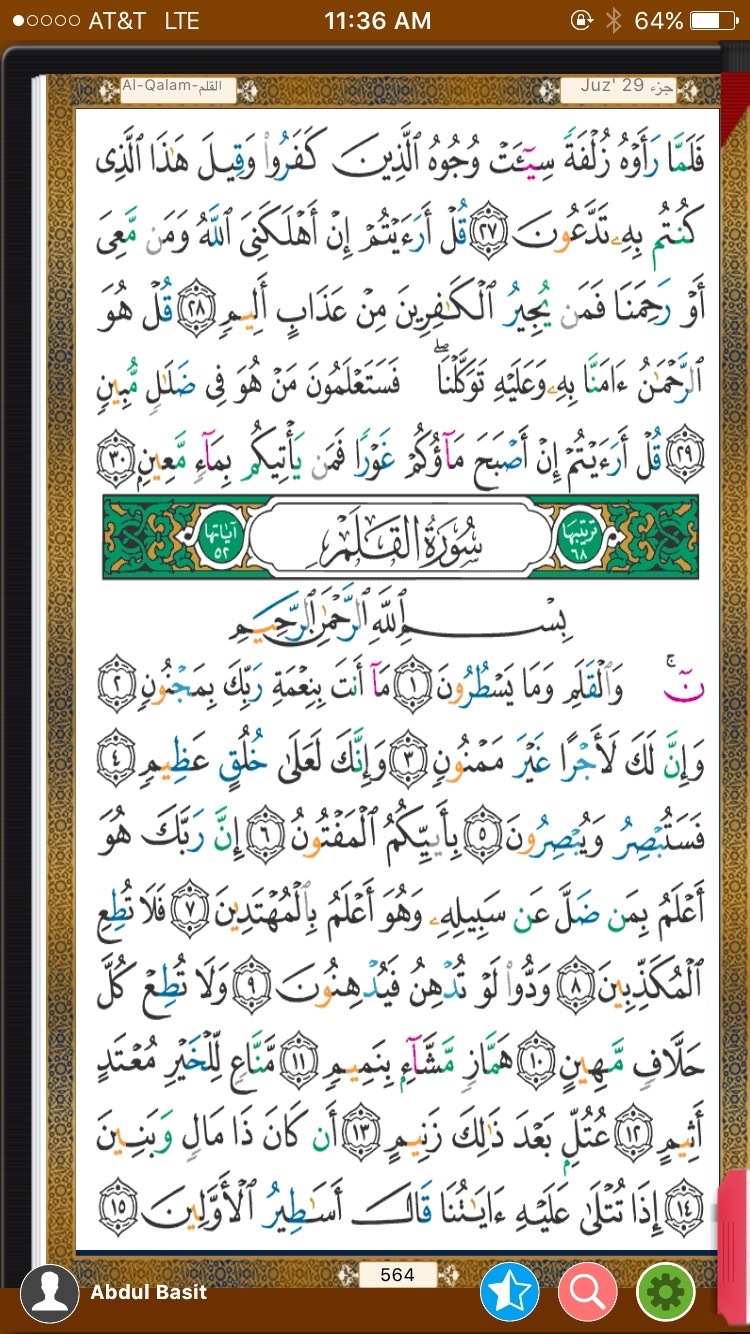 AT&T LTE 11:36 AM 64%
Al-Qalam-القلم Juz' 29 جزء
فَلَمَّا رَأَوْهُ زُلْفَةً سِيٓـَٔتْ وُجُوهُ ٱلَّذِينَ كَفَرُوا۟ وَقِيلَ هَـٰذَا ٱلَّذِى
كُنتُم بِهِۦ تَدَّعُونَ ٢٧ قُلْ أَرَءَيْتُمْ إِنْ أَهْلَكَنِىَ ٱللَّهُ وَمَن مَّعِىَ
أَوْ رَحِمَنَا فَمَن يُجِيرُ ٱلْكَـٰفِرِينَ مِنْ عَذَابٍ أَلِيمٍ ٢٨ قُلْ هُوَ
ٱلرَّحْمَـٰنُ ءَامَنَّا بِهِۦ وَعَلَيْهِ تَوَكَّلْنَا ۖ فَسَتَعْلَمُونَ مَنْ هُوَ فِى ضَلَـٰلٍ مُّبِينٍ
٢٩ قُلْ أَرَءَيْتُمْ إِنْ أَصْبَحَ مَآؤُكُمْ غَوْرًا فَمَن يَأْتِيكُم بِمَآءٍ مَّعِينٍۭ ٣٠
ترتيبها ٦٨ سُورَةُ القَلَمِ آياتها ٥٢
بِسْمِ ٱللَّهِ ٱلرَّحْمَـٰنِ ٱلرَّحِيمِ
نٓ ۚ وَٱلْقَلَمِ وَمَا يَسْطُرُونَ ١ مَآ أَنتَ بِنِعْمَةِ رَبِّكَ بِمَجْنُونٍ ٢
وَإِنَّ لَكَ لَأَجْرًا غَيْرَ مَمْنُونٍ ٣ وَإِنَّكَ لَعَلَىٰ خُلُقٍ عَظِيمٍ ٤
فَسَتُبْصِرُ وَيُبْصِرُونَ ٥ بِأَييِّكُمُ ٱلْمَفْتُونُ ٦ إِنَّ رَبَّكَ هُوَ
أَعْلَمُ بِمَن ضَلَّ عَن سَبِيلِهِۦ وَهُوَ أَعْلَمُ بِٱلْمُهْتَدِينَ ٧ فَلَا تُطِعِ
ٱلْمُكَذِّبِينَ ٨ وَدُّوا۟ لَوْ تُدْهِنُ فَيُدْهِنُونَ ٩ وَلَا تُطِعْ كُلَّ
حَلَّافٍ مَّهِينٍ ١٠ هَمَّازٍ مَّشَّآءٍۭ بِنَمِيمٍ ١١ مَّنَّاعٍ لِّلْخَيْرِ مُعْتَدٍ
أَثِيمٍ ١٢ عُتُلٍّۭ بَعْدَ ذَٰلِكَ زَنِيمٍ ١٣ أَن كَانَ ذَا مَالٍ وَبَنِينَ
١٤ إِذَا تُتْلَىٰ عَلَيْهِ ءَايَـٰتُنَا قَالَ أَسَـٰطِيرُ ٱلْأَوَّلِينَ ١٥
564
Abdul Basit